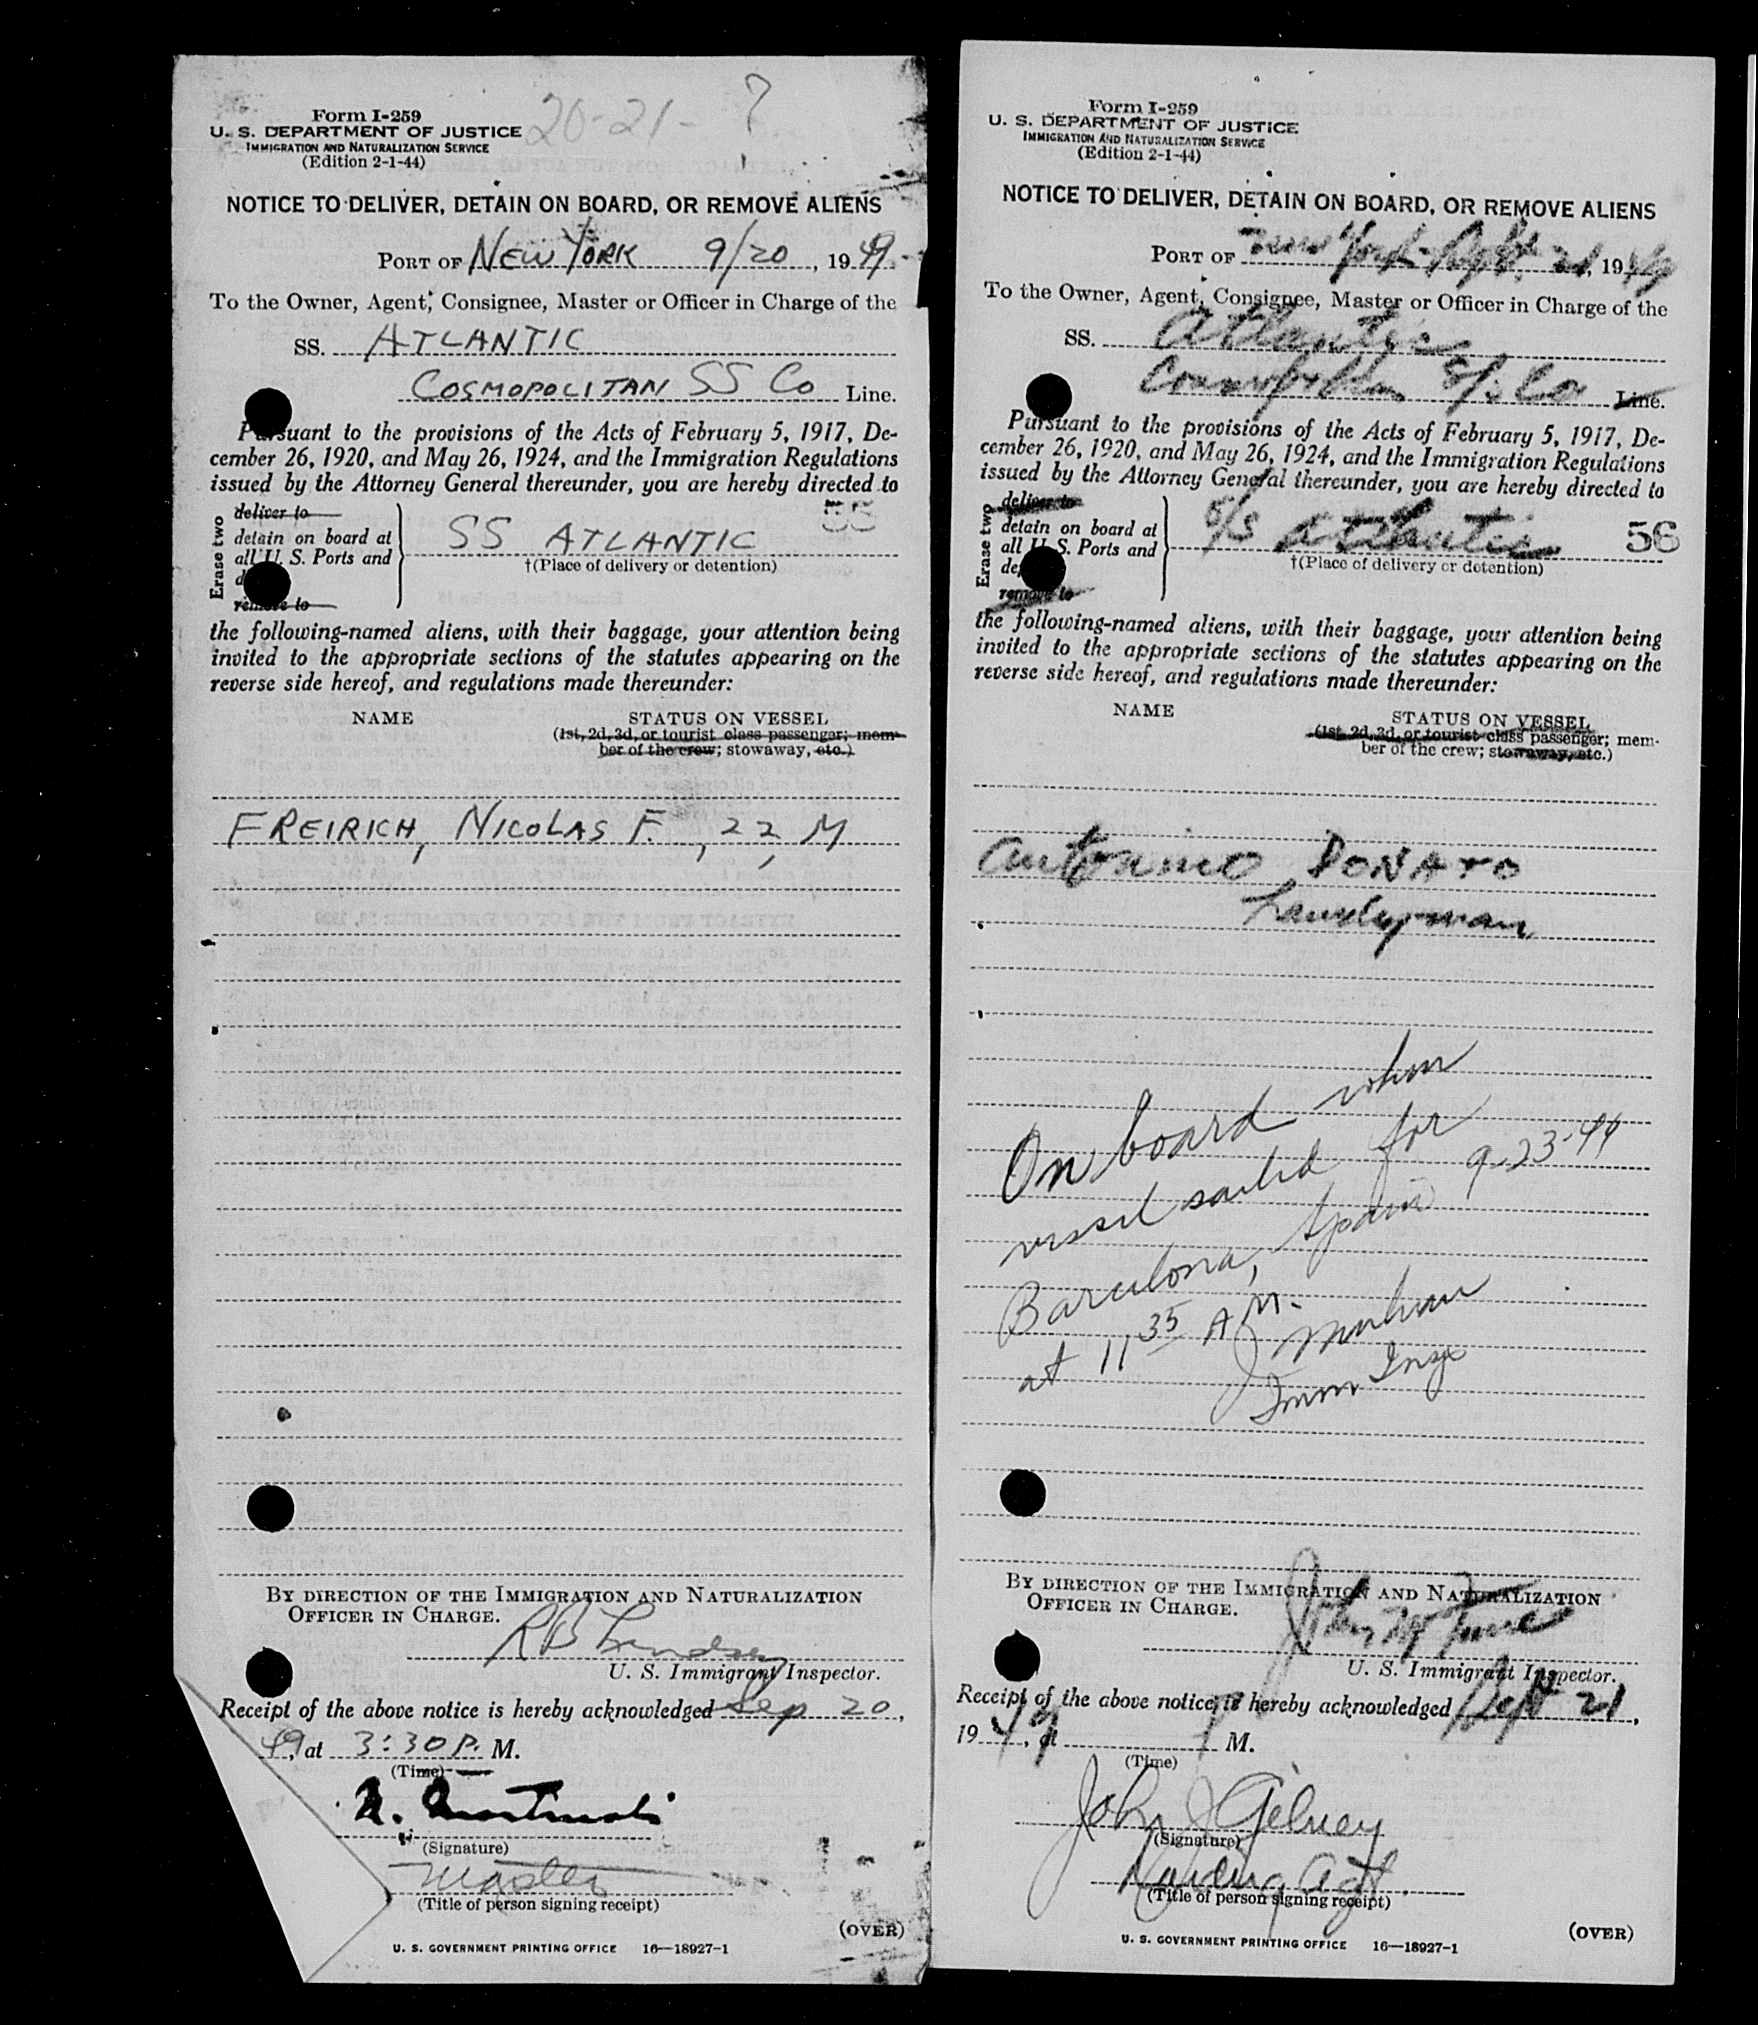 20-21-?
Form I-259
U. S. DEPARTMENT OF JUSTICE
IMMIGRATION AND NATURALIZATION SERVICE
(Edition 2-1-44)
NOTICE TO DELIVER, DETAIN ON BOARD, OR REMOVE ALIENS
PORT OF NEW YORK 9/20, 1949
To the Owner, Agent, Consignee, Master or Officer in Charge of the
SS. ATLANTIC
COSMOPOLITAN SS Co Line.
Pursuant to the provisions of the Acts of February 5, 1917, De-
cember 26, 1920, and May 26, 1924, and the Immigration Regulations
issued by the Attorney General thereunder, you are hereby directed to
Erase two
deliver to
detain on board at
all U. S. Ports and
remove to
55
SS ATLANTIC
†(Place of delivery or detention)
the following-named aliens, with their baggage, your attention being
invited to the appropriate sections of the statutes appearing on the
reverse side hereof, and regulations made thereunder:
NAME STATUS ON VESSEL
(1st, 2d, 3d, or tourist class passenger; mem-
ber of the crew; stowaway, etc.)
FREIRICH, NICOLAS F., 22, M
BY DIRECTION OF THE IMMIGRATION AND NATURALIZATION
OFFICER IN CHARGE.
R B Lindsey
U. S. Immigrant Inspector.
Receipt of the above notice is hereby acknowledged Sep 20,
49, at 3:30 P. M.
(Time)
(Signature)
Master
(Title of person signing receipt)
(OVER)
U. S. GOVERNMENT PRINTING OFFICE 16—18927-1
Form I-259
U. S. DEPARTMENT OF JUSTICE
IMMIGRATION AND NATURALIZATION SERVICE
(Edition 2-1-44)
NOTICE TO DELIVER, DETAIN ON BOARD, OR REMOVE ALIENS
PORT OF New York Sept. 21, 1949
To the Owner, Agent, Consignee, Master or Officer in Charge of the
SS. Atlantic
Cosmopolitan S/S Co Line.
Pursuant to the provisions of the Acts of February 5, 1917, De-
cember 26, 1920, and May 26, 1924, and the Immigration Regulations
issued by the Attorney General thereunder, you are hereby directed to
Erase two
deliver to
detain on board at
all U. S. Ports and
remove to
S/S Atlantic 56
†(Place of delivery or detention)
the following-named aliens, with their baggage, your attention being
invited to the appropriate sections of the statutes appearing on the
reverse side hereof, and regulations made thereunder:
NAME STATUS ON VESSEL
(1st, 2d, 3d, or tourist class passenger; mem-
ber of the crew; stowaway, etc.)
Antonino DONATO
Laundryman
On board when
vessel sailed for
Barcelona, Spain 9-23-49
at 11 35 A M.
Imm Insp
BY DIRECTION OF THE IMMIGRATION AND NATURALIZATION
OFFICER IN CHARGE.
U. S. Immigrant Inspector.
Receipt of the above notice is hereby acknowledged Sept 21,
1949, at M.
(Time)
John J Gelney
(Signature)
Landing Agt.
(Title of person signing receipt)
(OVER)
U. S. GOVERNMENT PRINTING OFFICE 16—18927-1